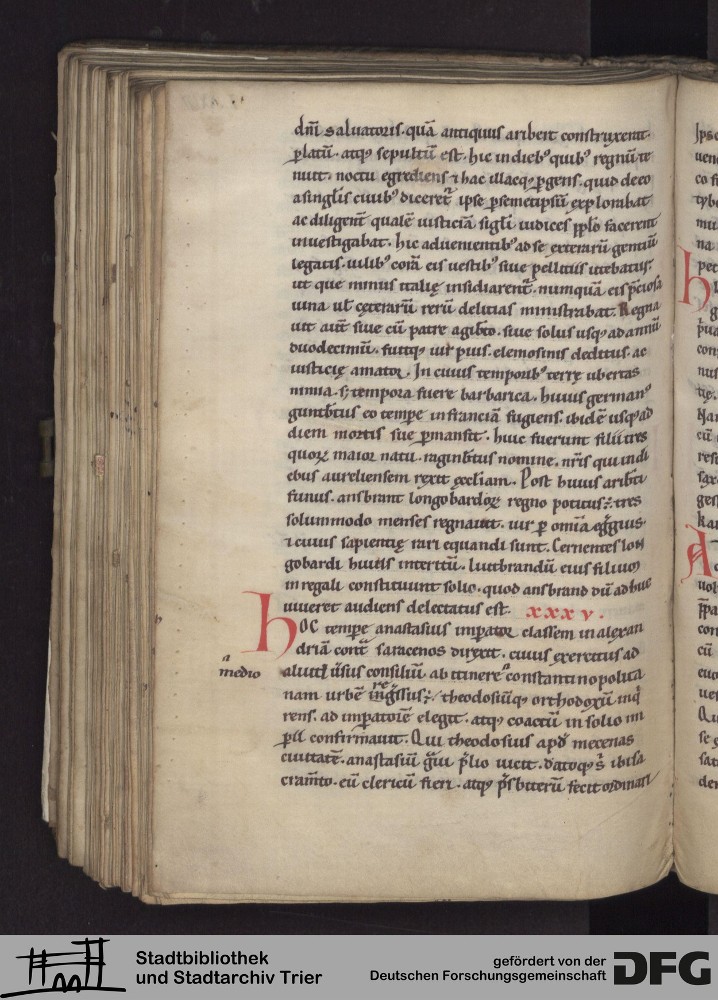 dnī saluatoris. quā antiquus aribert construxerat.
platū. atq; sepultū est. hic in dieb; quib; regnū te
nuit. noctu egrediens ⁊ hac illacq; pgens. quid de eo
a singlis ciuib; diceret᷑ ipse p semetipsū explorabat
ac diligent qualē iusticiā sigli iudices pplo facerent
inuestigabat. hic aduenientib; ad se exterarū gentiū
legatis. uilib; corā eis uestib; siue pelliciis utebatur.
ut que minus italię insidiarent᷑. nunquā eis p̄ciosa
uina ul ceterarū rerū delicias ministrabat. Regna
uit aut siue cū patre agibto. siue solus usq; ad annū
duodecimū. fuitq; uir pius. elemosinis deditus. ac
iusticię amator. In cuius temporib; terrę ubertas
nimia. s; tempora fuere barbarica. huius german;
guntbtus eo tempe in franciā fugiens. ibidē usq; ad
diem mortis sue pmansit. huic fuerunt filii tres
quoꝝ maior natu. raginbtus nomine. nris qui in di
ebus aureliensem rexit ęccliam. Post huius aribti
funus. ansbrant longobardoꝝ regno potitus; tres
solummodo menses regnauit. uir p omia egregius.
⁊ cuius sapientię rari equandi sunt. Cernentes lon
gobardi huius interitū. luitbrandū eius filium
in regali constituunt solio. quod ansbrand dū adhuc
uiueret audiens delectatus est. xxxv.
hOC tempe anastasius impator classem in alexan
driā cont̄ saracenos direxit. cuius exercitus ad
a
medio
aliud ūsus consiliū ab itinere constantinopolita
nam urbē ingressus; theodosiūq; orthodoxū inq
rens. ad imperatorē elegit. atq; coactū in solio im
pii confirmauit. Qui theodosius apd mecenas
ciuitatē. anastasiū gui plio uicit. datoq; s ibi sa
cramto. eū clericū fieri. atq; p̄sbiterū fecit ordinari
h
A
Stadtbibliothek
und Stadtarchiv Trier
gefördert von der
Deutschen Forschungsgemeinschaft
DFG